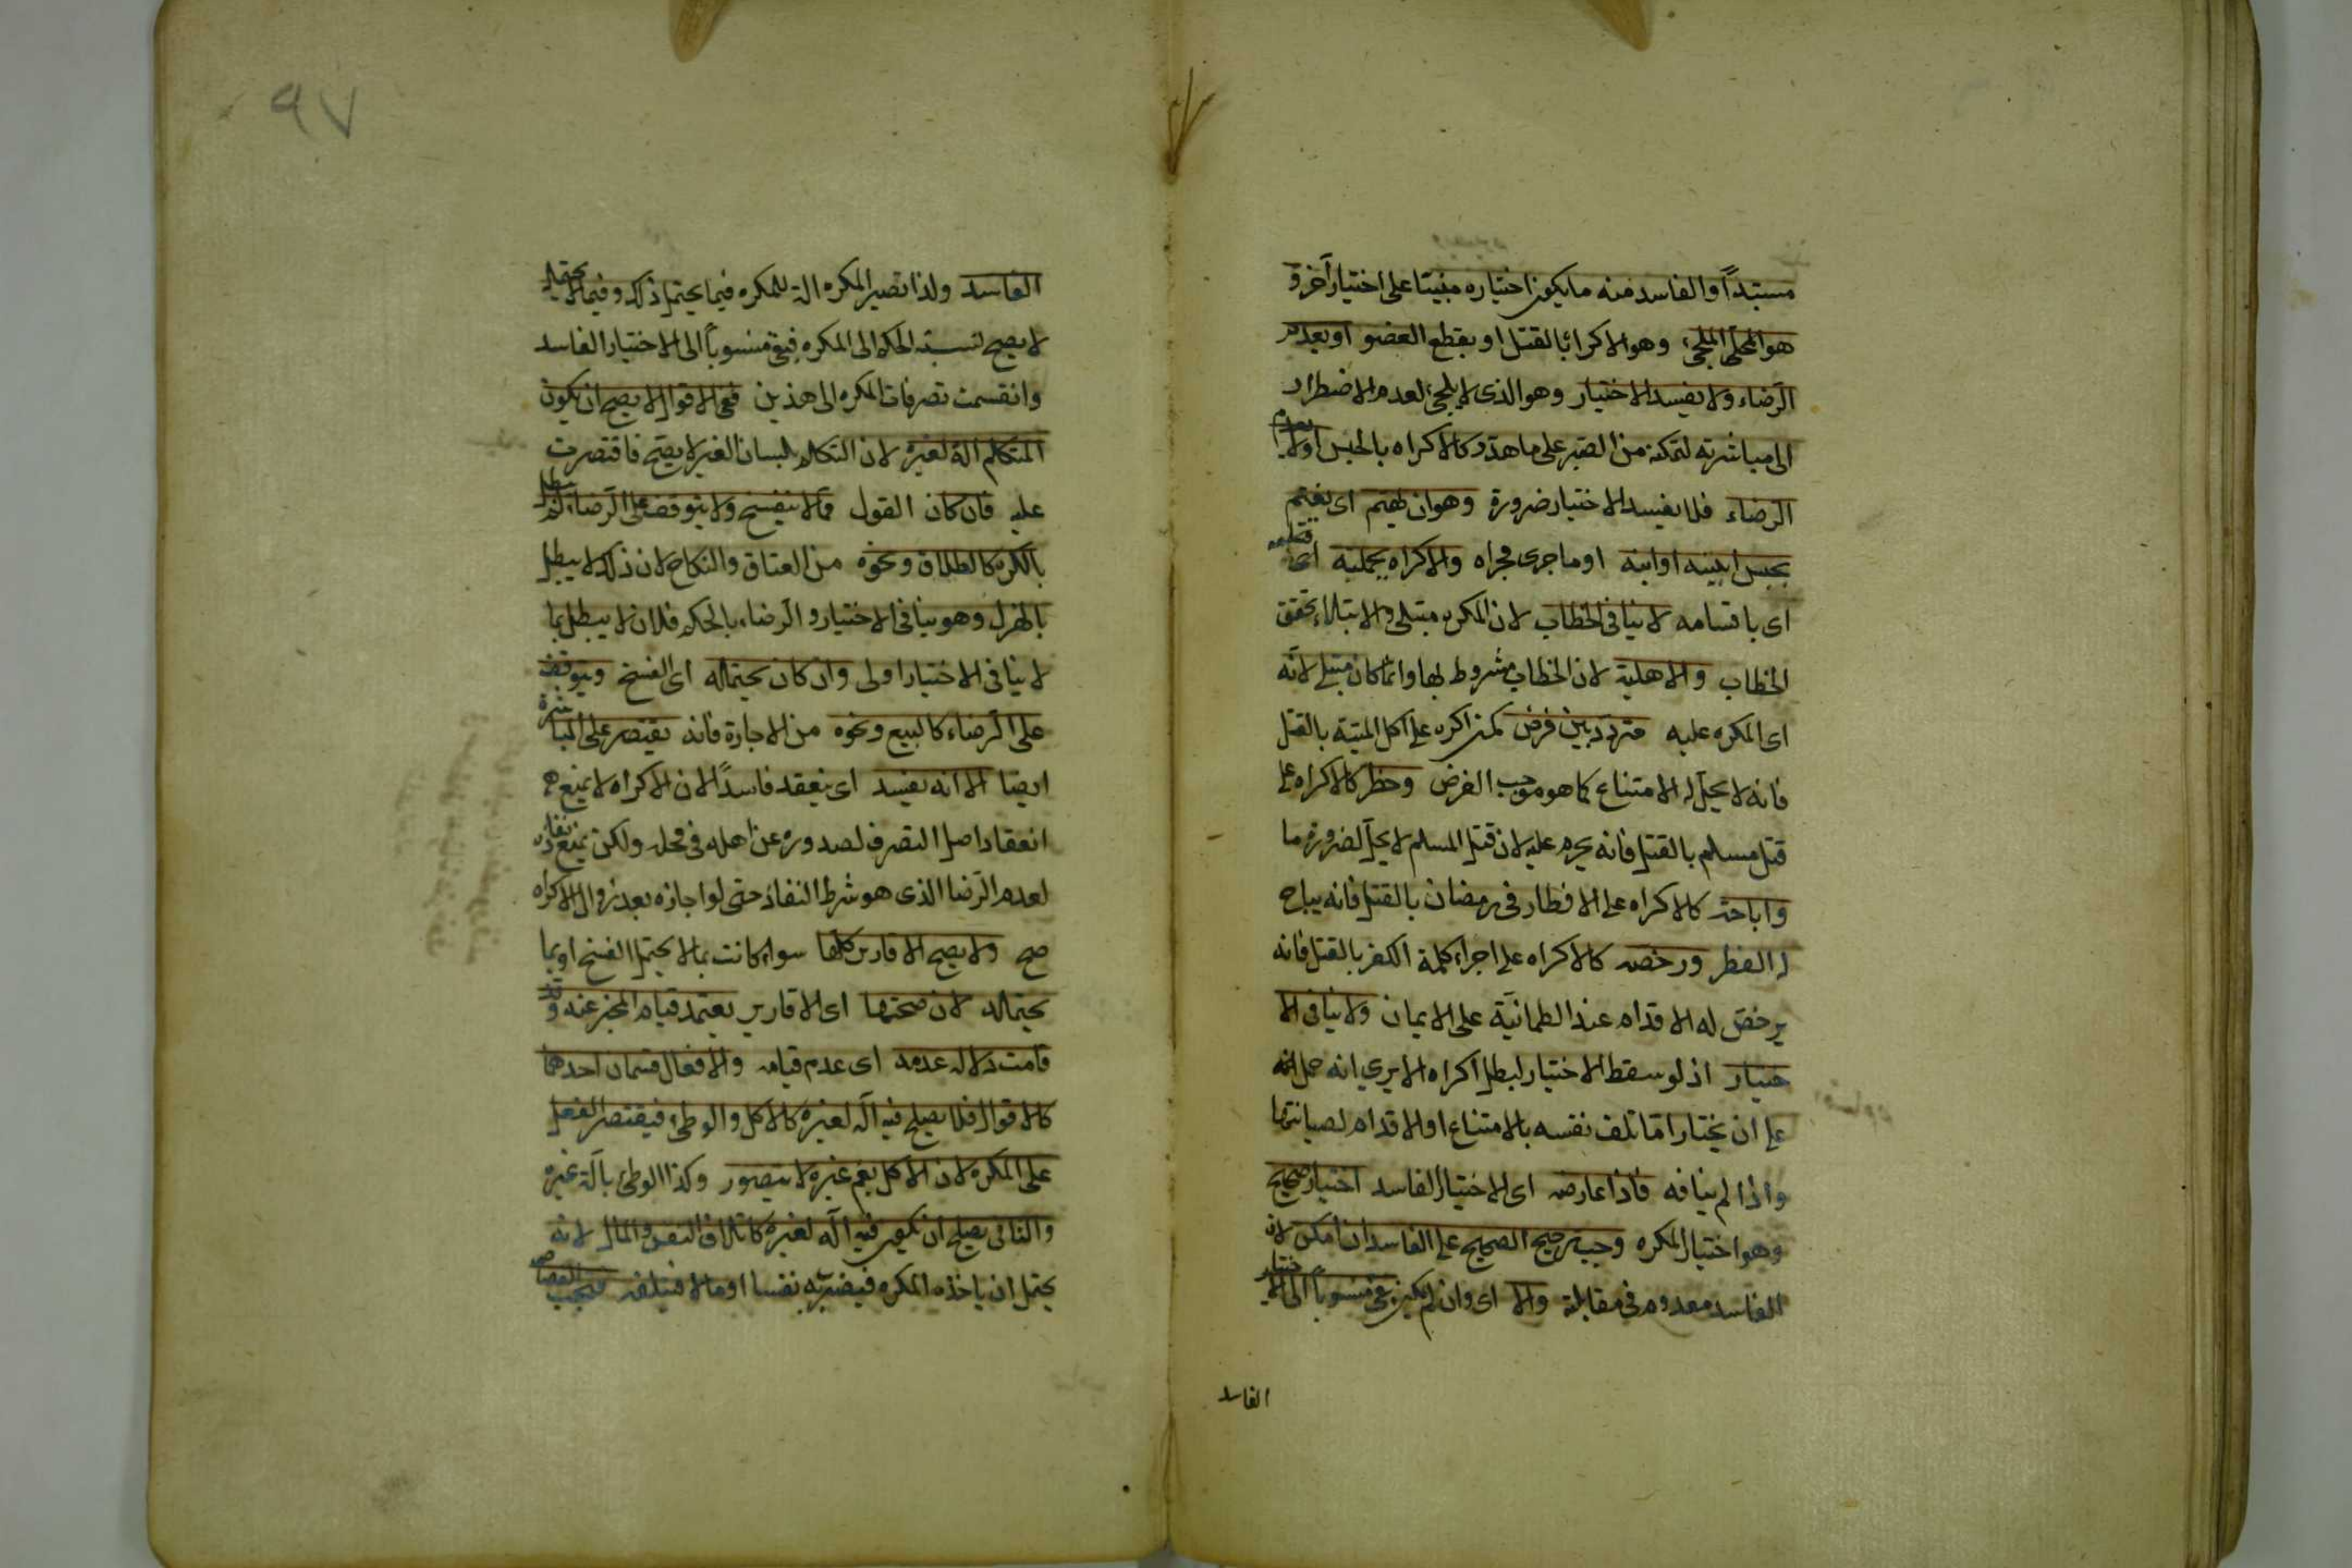 مستبدًا والفاسد منه ما يكون اختياره مبنيتا على اختيار آخر و
هو الملجئ وهو الاكراه بالقتل او بقطع العضو او يعدم
الرّضاء ولا يفسد الاختيار وهو الذى لا يلجئ لعدم الاضطرار
الى مباشرته لتمكنه من الصّبر على ما هدّد كالاكراه بالحبس اولا يعدم
الرّضاء فلا يفسد الاختيار ضرورة وهو ان يهتم اى يغتم
بحبس ابيه او ابنه او ما جرى مجراه والاكراه بجملته اى
اى باقسامه لا ينافى الخطاب لان المكره مبتلى والابتلاء يحقق
الخطاب والاهلية لان الخطاب مشروط بها وانّما كان مبتلى لانّه
اى المكره عليه متردّد بين فرض كمن اكره على اكل الميتة بالقتل
فانه لا يحلّ له الامتناع كما هو موجب الفرض وحظر كالاكراه على
قتل مسلم بالقتل فانه يحرم عليه لان قتل المسلم لا يحلّ لضرورة ما
واباحة كالاكراه على الافطار فى رمضان بالقتل فانه يباح
له الفطر ورخصه كالاكراه على اجراء كلمة الكفر بالقتل فانه
يرخصّ له الاقدام عند الطمانيّة على الايمان ولا ينافى الا
ختيار اذ لو سقط الاختيار لبطل اكراه الا يرى انه حمل له
على ان يختار امّا تلف نفسه بالامتناع او الاقدام لصيانتها
واذا لم ينافه فاذا عارضه اى الاختيار الفاسد اختيار صحيح
وهو اختيار المكره وجب ترجيح الصحيح على الفاسد ان امكن لان
الفاسد معدوم فى مقابلة والا اى وان لم يكن بقى منسوباً الى الاختيار
الفاسد
٩٧
الفاسد ولذا تصير المكره الة للمكره فيما يحتمل ذلك وفيما لا يحتمله
لا يصح نسبة الحكم الى المكره فبقى منسوباً الى الاختيار الفاسد
وانقسمت تصرفات المكره الى هذين ففى الاقوال لا يصح ان يكون
المتكلم الة لغيره لان التكلم بلسان الغير لا يصح فاقتصرت
عليه فان كان القول ممّا لا ينفسخ ولا يتوقف على الرّضاء لم يبطل
بالكره كالطلاق ونحوه من العتاق والنكاح لان ذلك لا يبطل
بالهزل وهو ينافى الاختيار والرّضاء بالحكم فلان لا يبطل بما
لا ينافى الاختيار اولى وان كان يحتمله اى الفسخ ويتوقف
على الرّضاء كالبيع ونحوه من الاجارة فانه يقتصر على المباشرة
ايضا الا انه يفسد اى ينعقد فاسدًا لان الاكراه لا يمنع
انعقاد اصل التصرف لصدوره عن اهله فى محله ولكن يمنع نفاذه
لعدم الرّضا الذى هو شرط النفاذ حتى لو اجازه بعد زوال الاكراه
صح ولا يصح الاقارير كلّها سواء كانت بما لا يحتمل الفسخ او بما
يحتمله لان صحتها اى الاقارير يعتمد قيام المخبر عنه وقد
قامت دلالة عدمه اى عدم قيامه والافعال قسمان احدهما
كالاقوال فلا يصلح فيه الّه لغيره كالاكل والوطئ فيقتصر الفعل
على المكره لان الاكل بفم غيره لا يتصور وكذا الوطئ بآلة غيره
والثانى يصلح ان يكون فيه الّه لغيره كاتلاف النفس والمال لانه
يحتمل ان ياخذه المكره فيضربه نفسا او مالا فيتلفه فيجب القصاص